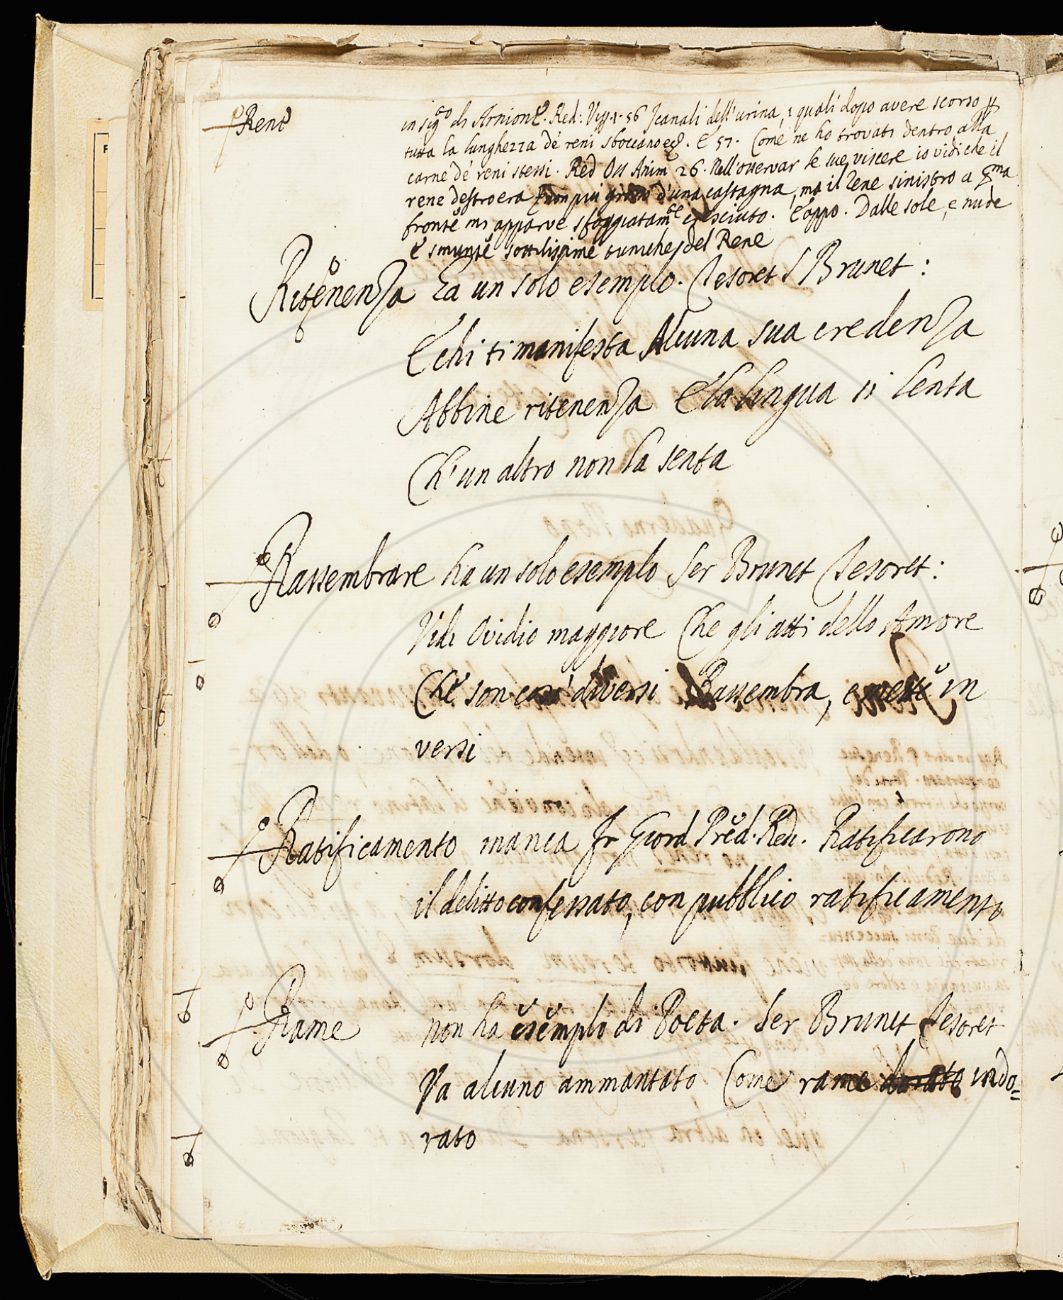 Rene
in sig.to di Arnione. Red: Vip. 1. 56 I canali dell'urina, i quali dopo avere scorso p
tutta la lunghezza de' reni sboccano &c. E 57. Come ne ho trovati dentro alla
carne de' reni stessi. Red Oss Anim 26. Nell'osservar le sue viscere io vidi che il
rene destro era non più grosso d'una castagna, ma il rene sinistro a pma
fronte mi apparve sfoggiatam.te cresciuto. E appo. Dalle sole, e nude
e smunte sottilissime tuniche del Rene
Ritenenza ha un solo esempio. Tesoret S Brunet:
E chi ti manifesta Alcuna sua credenza
Abbine ritenenza E la lingua sì lenta
Ch'un altro non la senta
Rassembrare ha un solo esemplo Ser Brunet Tesoret:
Vidi Ovidio maggiore Che gli atti dello Amore
Che son così diversi Rassembra, e mette in
versi
Ratificamento manca Fr Giord Pred. Red. Ratificarono
il delitto confessato, con pubblico ratificamento
Rame non ha esemplo di Poeta. Ser Brunet Tesoret
Va alcuno ammantato Come rame dorato indo=
rato